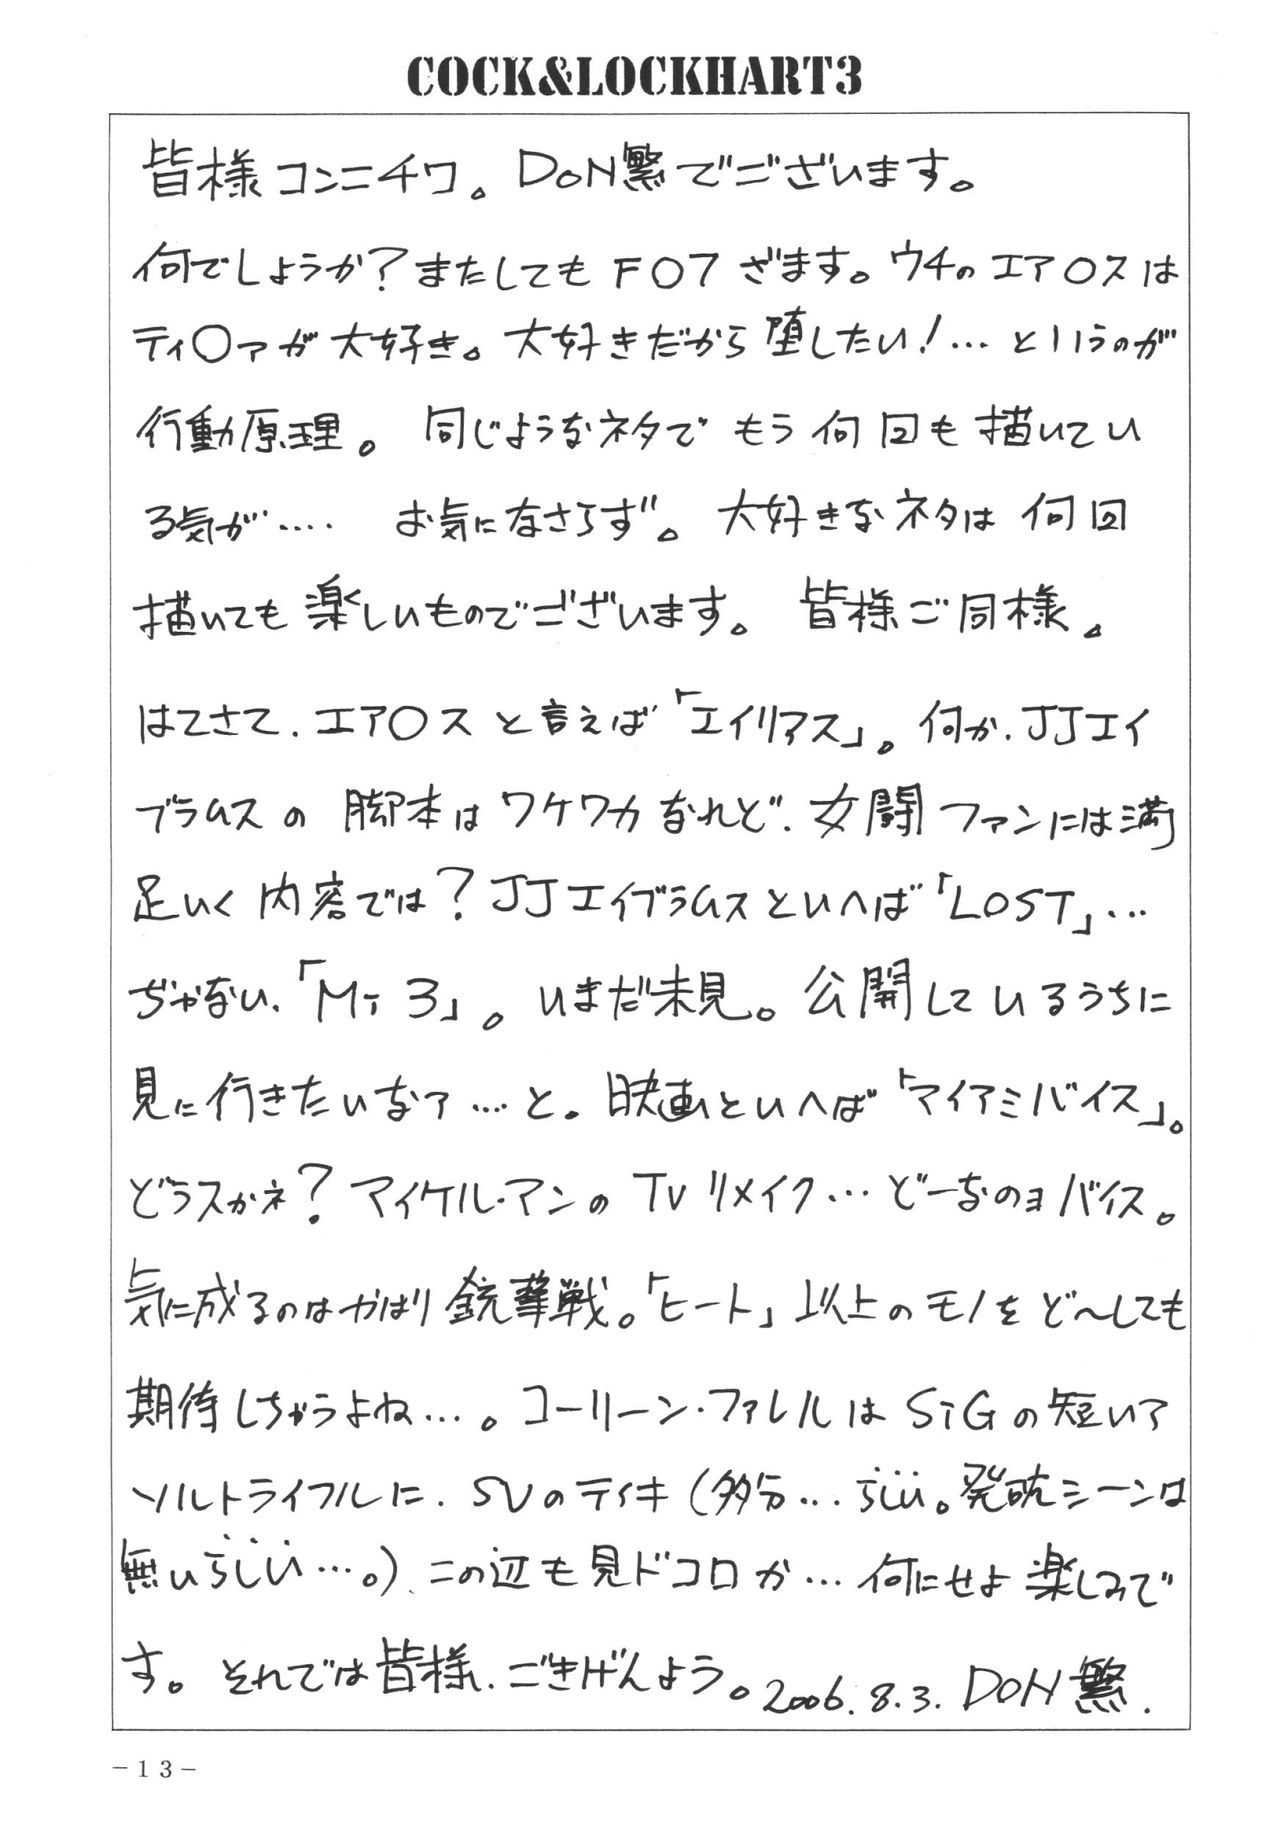 COCK&LOCKHART3
皆様コンニチワ。DoN繁でございます。
何でしょうか？またしてもFO7ざます。ウチのエア〇スは
ティ〇ァが大好き。大好きだから堕したい！…というのが
行動原理。同じようなネタでもう何回も描いてい
る気が…. お気になさらず。大好きなネタは何回
描いても楽しいものでございます。皆様ご同様。
はてさて、エア〇スと言えば「エイリアス」。何か、JJエイ
ブラムスの脚本はワケワカなれど、女闘ファンには満
足いく内容では？JJエイブラムスといへば「LOST」…
ぢゃない、「Mi3」。いまだ未見。公開しているうちに
見に行きたいなァ…と。映画といへば「マイアミバイス」。
どうスかネ？マイケル・マンのTVリメイク…どーなのョバイス。
気に成るのはやはり銃撃戦。「ヒート」以上のモノをど〜しても
期待しちゃうよね…。コーリーン・ファレルはSiGの短いア
ソルトライフルに、SVのティキ（多分…らしい。発砲シーンは
無いらしい…。）、この辺も見ドコロか…何にせよ楽しみで
す。それでは皆様、ごきげんよう。2006.8.3. DoN繁.
-13-